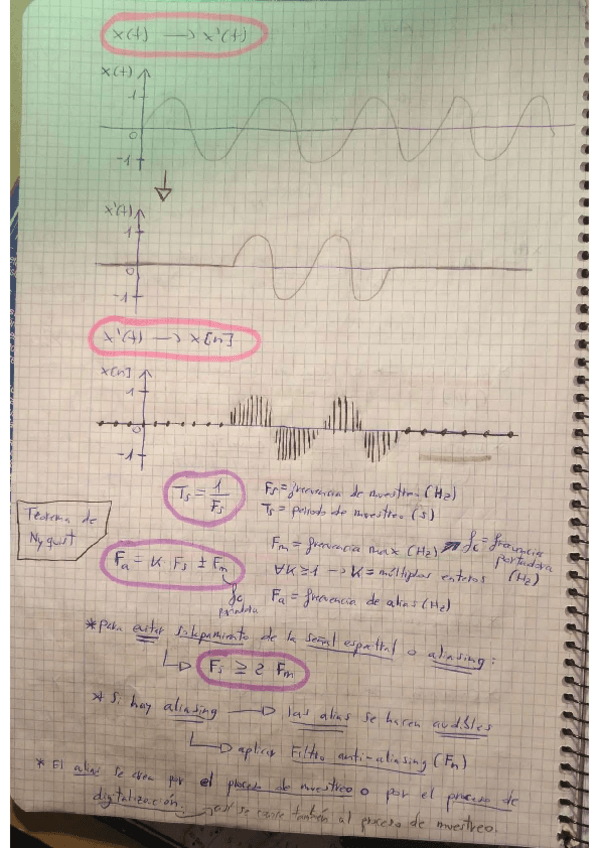 x(t) → x'(t)
x(t)
1
0
-1
x'(t)
1
0
-1
x'(t) → x[n]
x[n]
1
0
-1
Ts = 1/Fs
Fs = frecuencia de muestreo (Hz)
Ts = periodo de muestreo (s)
Teorema de
Nyquist
Fa = K · Fs ± Fm
fc
Fm = frecuencia max (Hz) fc = frecuencia
portadora
(Hz)
∀K ≥ 1 → K = múltiplos enteros
Fa = frecuencia de alias (Hz)
* Para evitar solapamiento de la señal espectral o aliasing:
Fs ≥ 2 Fm
* Si hay aliasing → las alias se hacen audibles
aplicar Filtro anti-aliasing (Fn)
* El alias se crea por el proceso de muestreo o por el proceso de
digitalización. así se conoce también al proceso de muestreo.